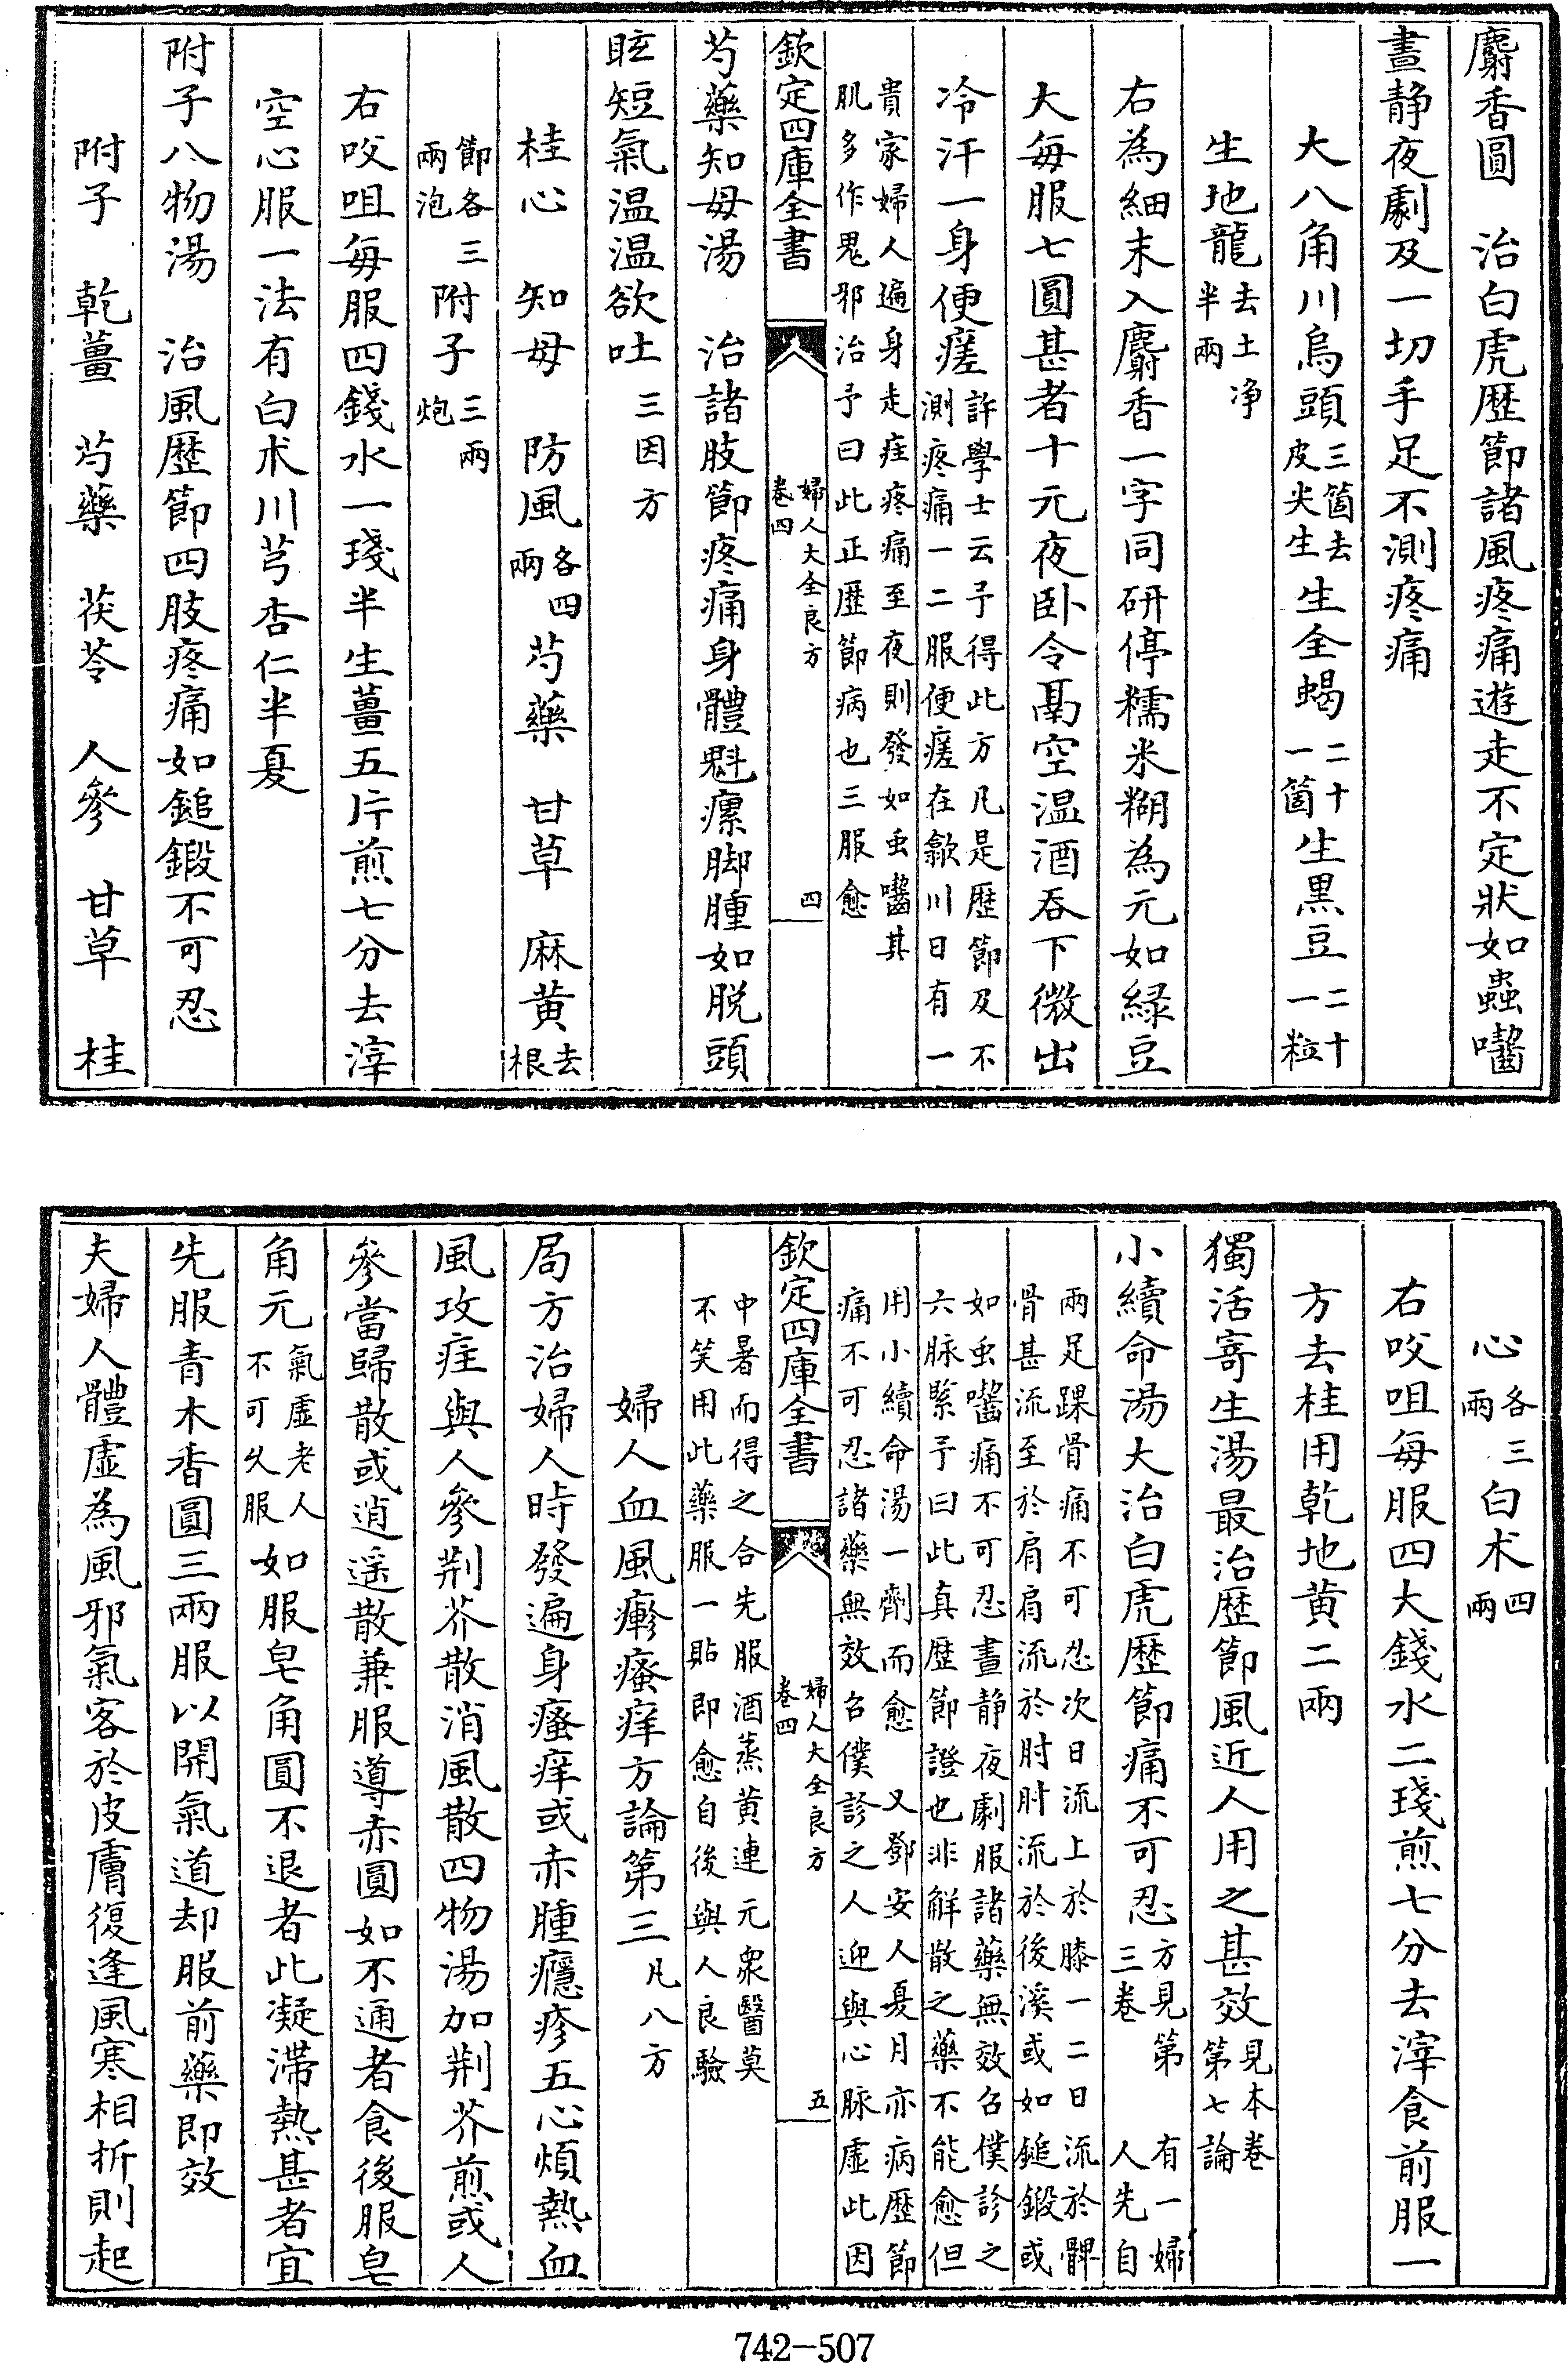 麝香圓　治白虎歷節諸風疼痛遊走不定狀如蟲嚙
晝静夜劇及一切手足不測疼痛
大八角川烏頭三箇去皮尖生　生全蝎二十一箇　生黒豆二十一粒
生地龍去土净半兩
右為細末入麝香一字同研停糯米糊為元如緑豆
大每服七圓甚者十元夜卧令鬲空温酒吞下微出
冷汗一身便瘥許學士云予得此方凡是歷節及不測疼痛一二服便瘥在歙川日有一
貴家婦人遍身走疰疼痛至夜則發如虫嚙其肌多作鬼邪治予曰此正歷節病也三服愈
欽定四庫全書　婦人大全良方卷四　四
芍藥知母湯　治諸肢節疼痛身體魁瘰脚腫如脱頭
眩短氣温温欲吐三因方
桂心　知母　防風各四兩　芍藥　甘草　麻黄去根
節各三兩泡　附子三兩炮
右㕮咀每服四錢水一琖半生薑五片煎七分去滓
空心服一法有白朮川芎杏仁半夏
附子八物湯　治風歷節四肢疼痛如鎚鍛不可忍
附子　乾薑　芍藥　茯苓　人參　甘草　桂
心各三兩　白朮四兩
右㕮咀每服四大錢水二琖煎七分去滓食前服一
方去桂用乾地黄二兩
獨活寄生湯最治歷節風近人用之甚效見本卷第七論
小續命湯大治白虎歷節痛不可忍方見第三卷　有一婦人先自
兩足踝骨痛不可忍次日流上於膝一二日流於髀骨甚流至於肩肩流於肘肘流於後溪或如鎚鍛或
如虫嚙痛不可忍晝静夜劇服諸藥無效召僕診之六脉緊予曰此真歷節證也非解散之藥不能愈但
用小續命湯一劑而愈　又鄧安人夏月亦病歷節痛不可忍諸藥無效召僕診之人迎與心脉虚此因
欽定四庫全書　婦人大全良方卷四　五
中暑而得之合先服酒蒸黄連元衆醫莫不笑用此藥服一貼即愈自後與人良驗
婦人血風瘮瘙痒方論第三凡八方
局方治婦人時發遍身瘙痒或赤腫癮疹五心煩熱血
風攻疰與人參荆芥散消風散四物湯加荆芥煎或人
參當歸散或逍遥散兼服導赤圓如不通者食後服皂
角元氣虚老人不可久服　如服皂角圓不退者此凝滯熱甚者宜
先服青木香圓三兩服以開氣道却服前藥即效
夫婦人體虚為風邪氣客於皮膚復逢風寒相折則起
742-507